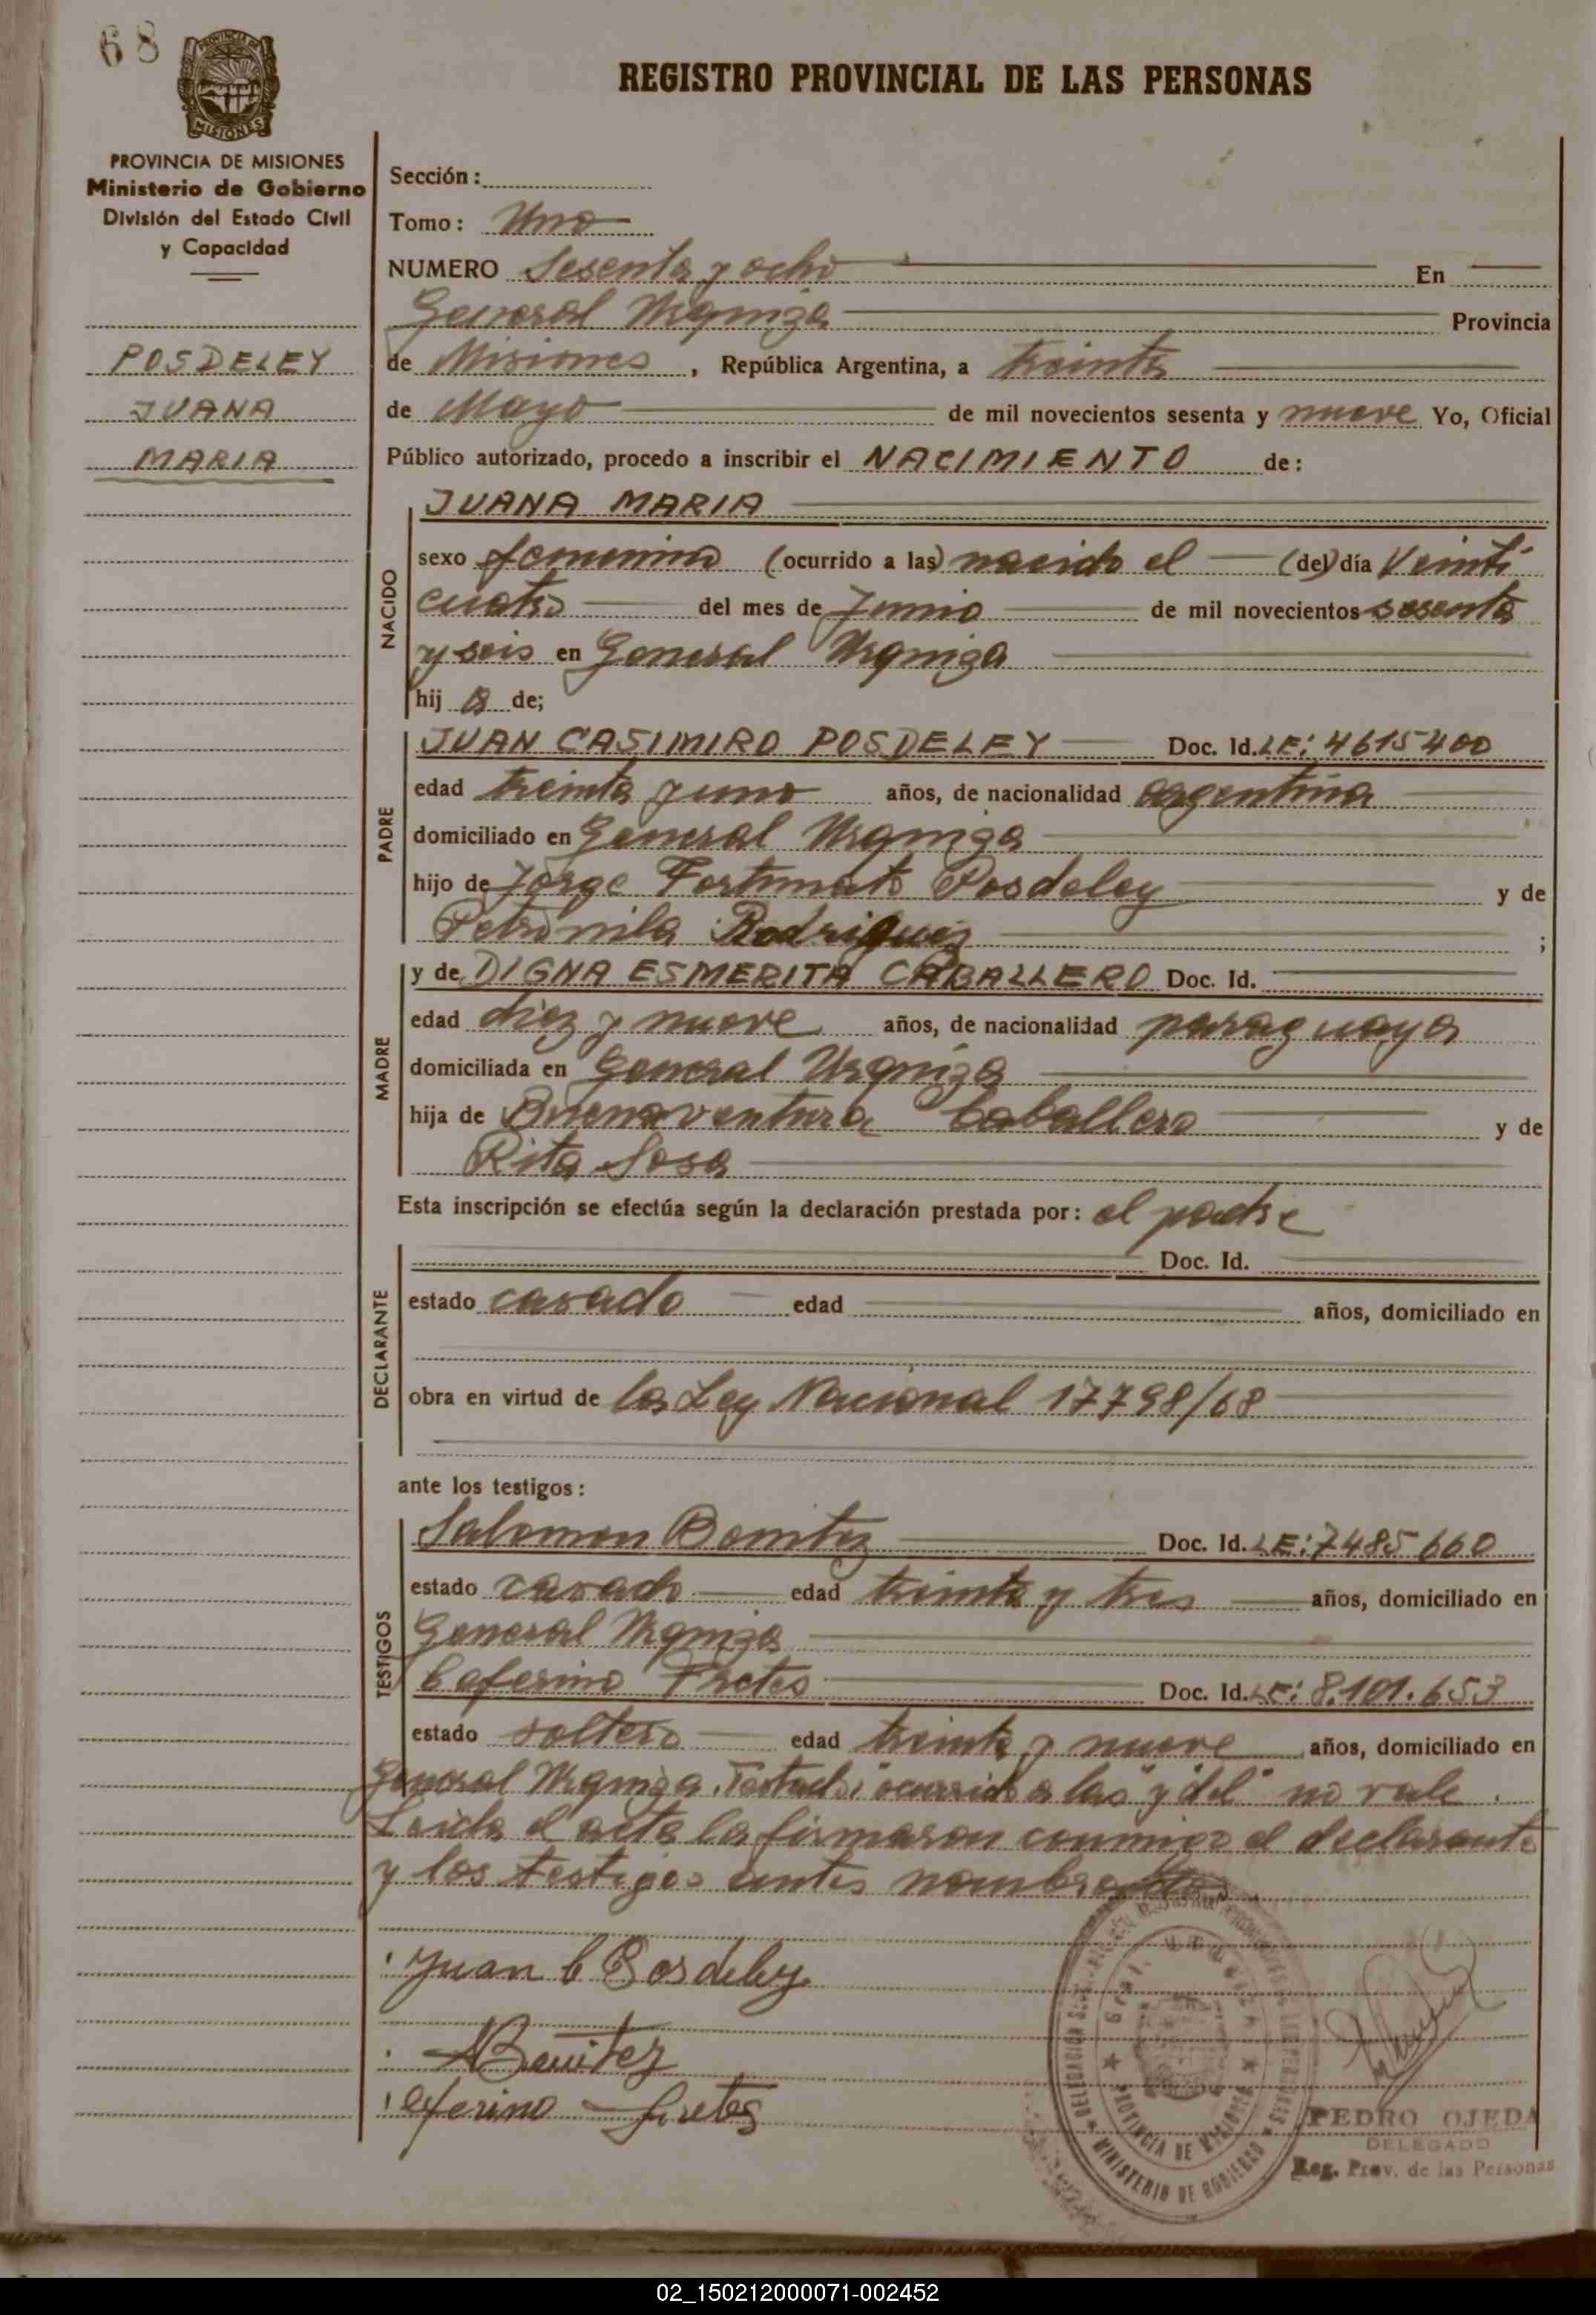 68
PROVINCIA DE
MISIONES
REGISTRO PROVINCIAL DE LAS PERSONAS
PROVINCIA DE MISIONES
Ministerio de Gobierno
División del Estado Civil
y Capacidad
POSDELEY
JUANA
MARIA
Sección:
Tomo: Uno
NUMERO Sesenta y ocho En
General Urquiza Provincia
de Misiones, República Argentina, a treinta
de Mayo de mil novecientos sesenta y nueve Yo, Oficial
Público autorizado, procedo a inscribir el NACIMIENTO de:
NACIDO
JUANA MARIA
sexo femenino (ocurrido a las) nacido el (del) día Veinti
cuatro del mes de Junio de mil novecientos sesenta
y seis en General Urquiza
hij a de;
PADRE
JUAN CASIMIRO POSDELEY Doc. Id. LE: 4615400
edad treinta y uno años, de nacionalidad argentina
domiciliado en General Urquiza
hijo de Jorge Fortunato Posdeley y de
Petronila Rodriguez ;
MADRE
y de DIGNA ESMERITA CABALLERO Doc. Id.
edad diez y nueve años, de nacionalidad paraguaya
domiciliada en General Urquiza
hija de Buenaventura Caballero y de
Rita Sosa
Esta inscripción se efectúa según la declaración prestada por: el padre
DECLARANTE
Doc. Id.
estado casado edad años, domiciliado en
obra en virtud de la Ley Nacional 17798/68
ante los testigos:
TESTIGOS
Salomon Benitez Doc. Id. LE: 7485660
estado casado edad treinta y tres años, domiciliado en
General Urquiza
Ceferino Fretes Doc. Id. LE: 8.101.653
estado soltero edad treinta y nueve años, domiciliado en
General Urquiza. Testado: "ocurrido a las" y "del" no vale.
Leida el acta la firmaron conmigo el declarante
y los testigos antes nombrados
Juan C Posdeley
Benitez
Ceferino Fretes
PROVINCIA DE MISIONES
MINISTERIO DE GOBIERNO
PEDRO OJEDA
DELEGADO
Reg. Prov. de las Personas
02_150212000071-002452